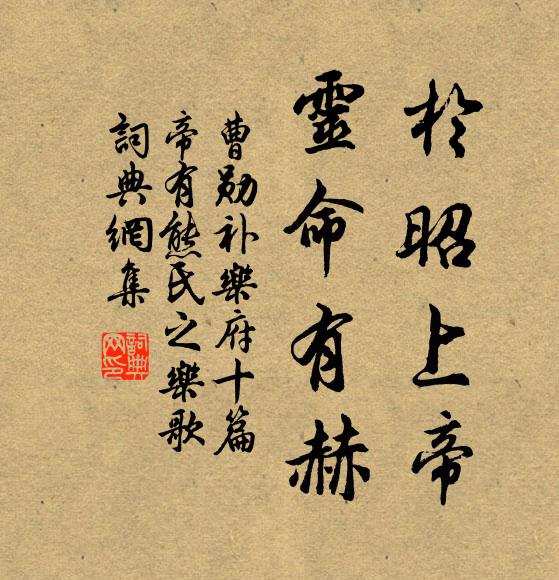 於昭上帝
靈命有赫
曹勛补樂府十篇
帝有熊氏之樂歌
詞典網集
詞典
网印